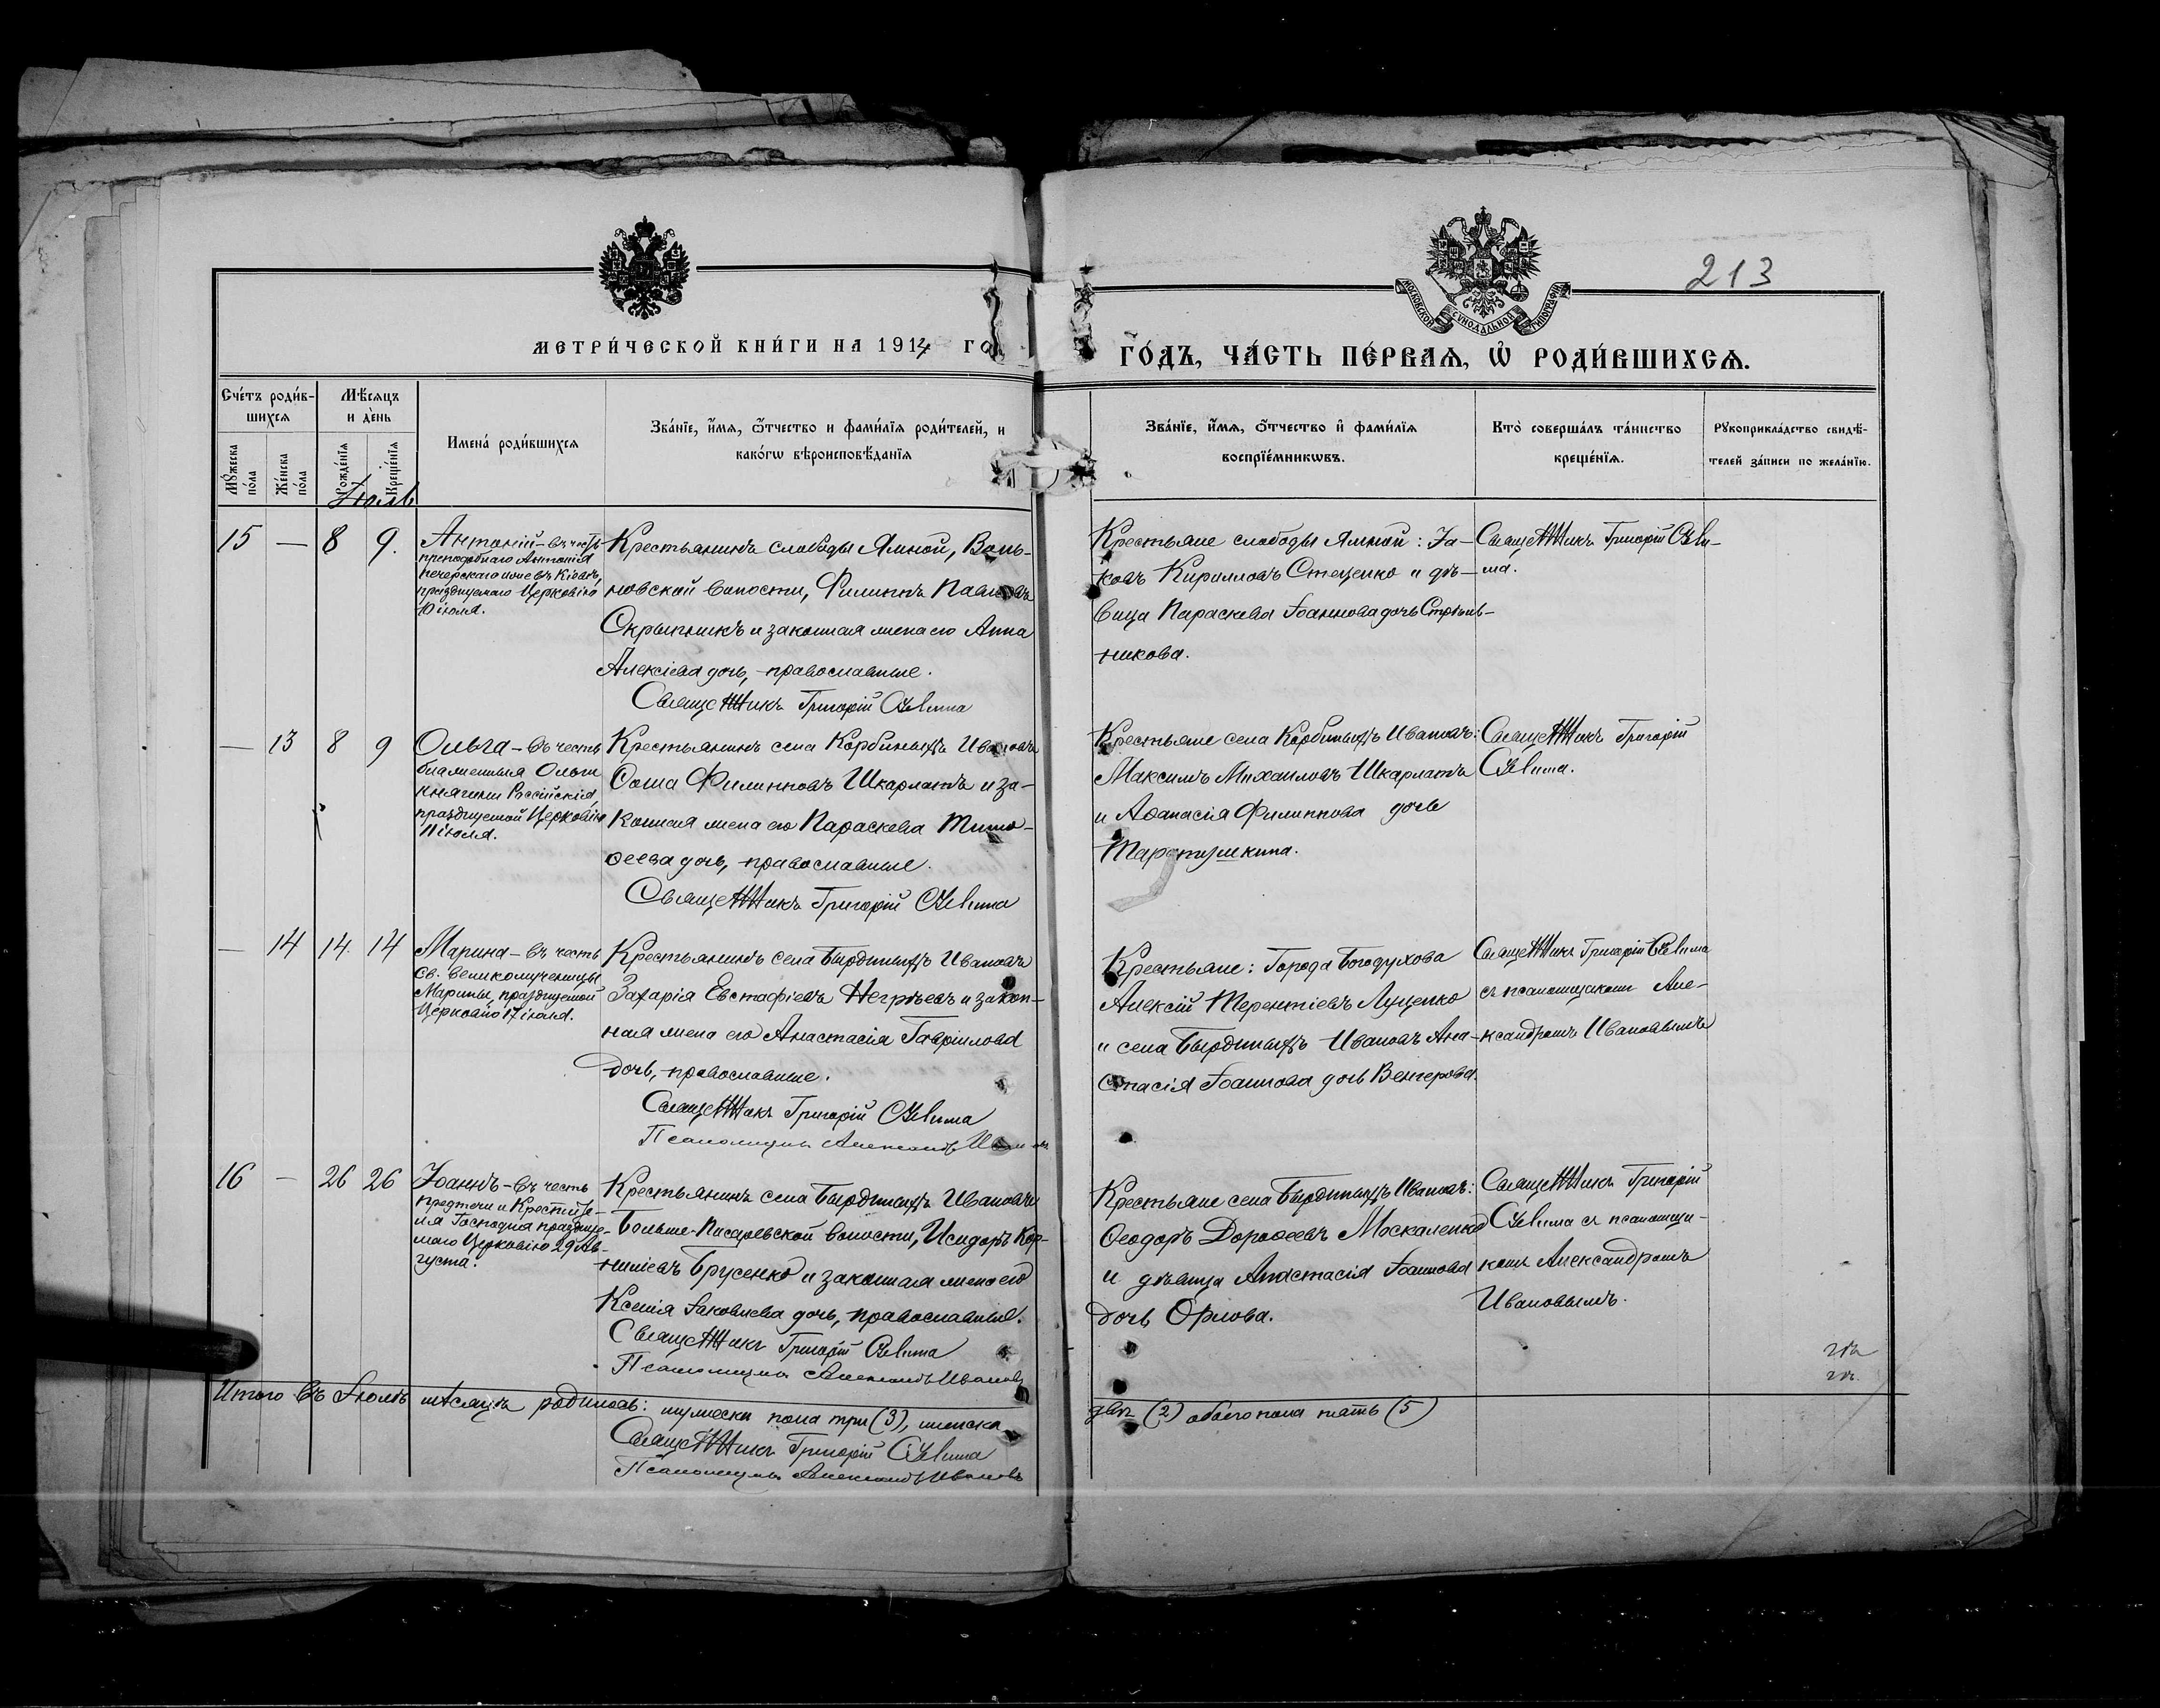 213
МОСКОВСКОЙ СУНОДАЛЬНОЙ ТИПОГРАФІИ
МЕТРИ́ЧЕСКОЙ КНИ́ГИ НА 1914 ГО
ГО́ДЪ, ЧА́СТЬ ПЕ́РВАѦ, Ѡ҆ РОДИ́ВШИХСѦ.
Сче́тъ роди́в-
шихсѧ
Мѣ́сѧцъ
и де́нь
Мꙋ́жеска
по́ла
Же́нска
по́ла
Рожде́нїѧ
Креще́нїѧ
Имена́ роди́вшихсѧ
Зва́нїе, и҆́мѧ, ѻ҆́тчество и фами́лїѧ роди́телей, и
како́гѡ вѣроисповѣ́данїѧ
Зва́нїе, и҆́мѧ, ѻ҆́тчество и҆ фами́лїѧ
воспрїе́мникѡвъ.
Кто̀ соверша́лъ та́инство
креще́нїѧ.
Рꙋкоприкла́дство свидѣ́-
телей за́писи по жела́нїю.
Іюль
15 — 8 9.
Антоній – въ честь
преподобнаго Антонія
Печерскаго иже въ Кіевѣ,
празднуемаго Церковію
10 іюля.
Крестьянинъ слободы Ямной, Воль-
новской волости, Филиппъ Павловъ
Скрыпникъ и законная жена его Анна
Алексіева дочь, – православные.
Священникъ Григорій
Крестьяне слободы Ямной: Іа-
ковъ Кирилловъ Стеценко и дѣ-
вица Параскева Іоаннова дочь Стрѣль-
никова.
Священникъ Григорій
— 13 8 9
Ольга – въ честь
блаженныя Ольги
княгини Россійскія,
празднуемой Церковію
11 іюля.
Крестьянинъ села Ивановъ
Ѳома Филипповъ Шкарлатъ и за-
конная жена его Параскева Тимо-
ѳеева дочь, – православные.
Священникъ Григорій
Крестьяне села Ивановъ:
Максимъ Михаиловъ Шкарлатъ
и Аѳанасія Филиппова дочь
Священникъ Григорій
— 14 14. 14
Марина – въ честь
св. великомученицы
Марины, празднуемой
Церковію 17 іюля.
Крестьянинъ села Ивановъ
Захарія Евстафіевъ Негрѣевъ и закон-
ная жена его Анастасія Гавріилова
дочь, – православные.
Священникъ Григорій
Псаломщикъ Александръ Ивановъ
Крестьяне: Города Богодухова
Алексій Терентіевъ Луценко
и села Ивановъ Ана-
стасія Іоаннова дочь Венгерова.
Священникъ Григорій
съ псаломщикомъ Але-
ксандромъ Ивановымъ
16 — 26 26
Іоаннъ – въ честь
Предтечи и Крестите-
ля Господня праздную-
маго Церковію 29 Ав-
густа.
Крестьянинъ села Ивановъ
Больше-Писаревской волости, Исидоръ Кор-
ниліевъ Брусенко и законная жена его
Ксенія Іаковлева дочь, православные.
Священникъ Григорій
Псаломщикъ Александръ Ивановъ
Крестьяне села Ивановъ:
Ѳеодоръ Дороѳеевъ Москаленко
и дѣвица Анастасія Іоаннова
дочь Орлова.
Священникъ Григорій
съ псаломщи-
комъ Александромъ
Ивановымъ.
Итого въ Іюлѣ мѣсяцѣ родилось: мужеска пола три (3), женска
двѣ (2) обоего пола пять (5)
Священникъ Григорій
Псаломщикъ Александръ Ивановъ